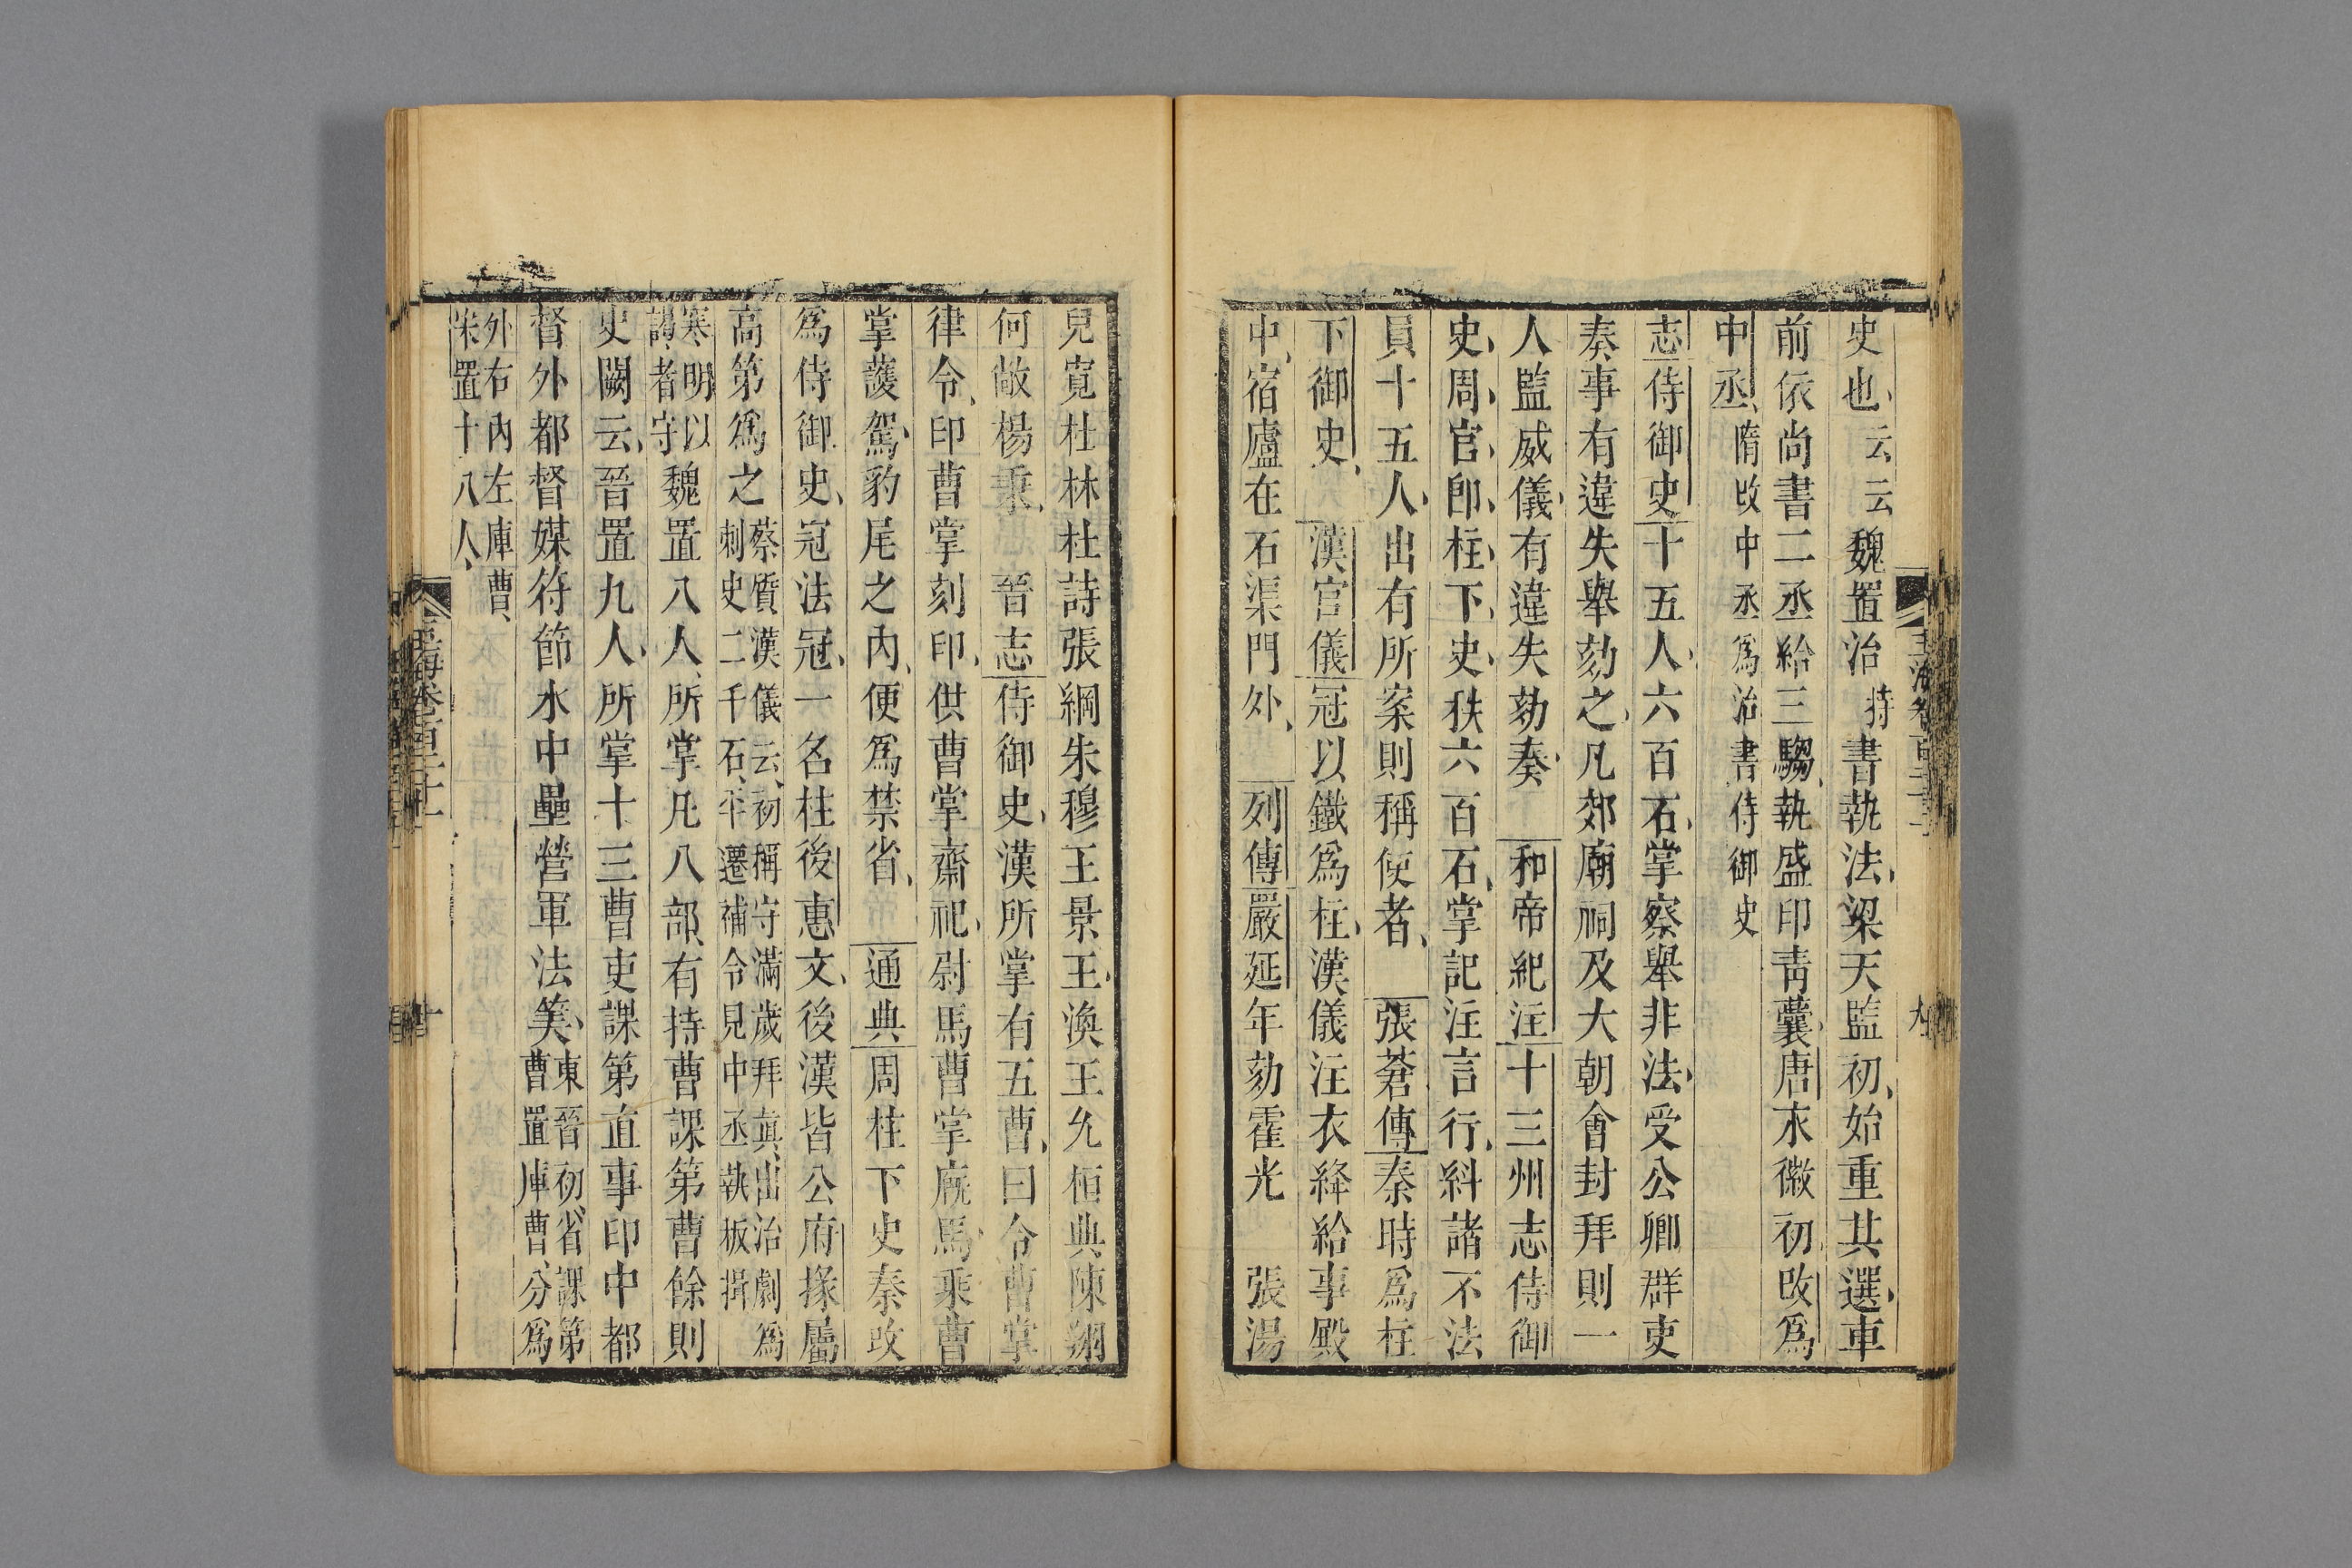 史也云云魏置治持書執法梁天監初始重其選車
前依尚書二丞給三騶執盛印青囊唐末徽初改爲
中丞隋改中丞爲治書侍御史
志侍御史十五人六百石掌察舉非法受公卿群吏
奏事有違失舉劾之凡郊廟祠及大朝會封拜則一
人監威儀有違失劾奏和帝紀注十三州志侍御
史周官卽柱下史秩六百石掌記注言行糾諸不法
員十五人出有所案則稱使者張蒼傳秦時爲柱
下御史漢官儀冠以鐵爲柱漢儀注衣絳給事殿
中宿廬在石渠門外列傳嚴延年劾霍光張湯
兒寬杜林杜詩張綱朱穆王景王渙王允桓典陳翔
何敞楊秉晉志侍御史漢所掌有五曹曰令曹掌
律令印曹掌刻印供曹掌齋祀尉馬曹掌廐馬乘曹
掌護駕豹尾之內便爲禁省通典周柱下史秦改
爲侍御史冠法冠一名柱後惠文後漢皆公府掾屬
高第爲之蔡質漢儀云初稱守滿歲拜眞出治劇爲
刺史二千石平遷補令見中丞執板揖
寒明以
謁者守魏置八人所掌凡八部有持曹課第曹餘則
史闕云晉置九人所掌十三曹吏課第直事印中都
督外都督媒符節水中壘營軍法筭東晉初省課第
曹置庫曹分爲
外右內左庫曹
宋置十八人
玉海卷百二十一
九
十